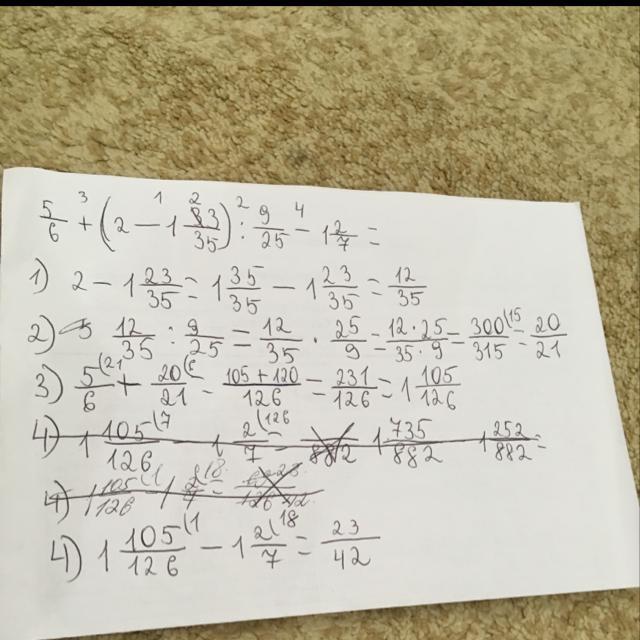 5/6 + (2 - 1 23/35) : 9/25 - 1 2/7 =
1) 2 - 1 23/35 = 1 35/35 - 1 23/35 = 12/35
2) 12/35 : 9/25 = 12/35 · 25/9 = 12·25/35·9 = 300/315 (15 = 20/21
3) 5/6 (21 + 20/21 (6 = 105+120/126 = 231/126 = 1 105/126
4) 1 105/126 (7 - 1 2/7 (126 = 1 735/882 - 1 252/882 =
4) 1 105/126 (1
4) 1 105/126 (1 - 1 2/7 (18 = 23/42